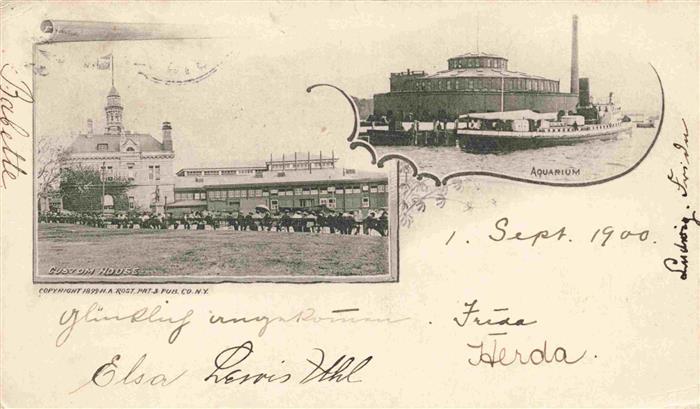 AQUARIUM
CUSTOM HOUSE.
COPYRIGHT 1899 H. A. ROST. PRT. & PUB. CO. N.Y.
1. Sept. 1900.
Babette
Ludwig.
glücklich angekommen. Frida
Herda.
Elsa Lewis Uhl